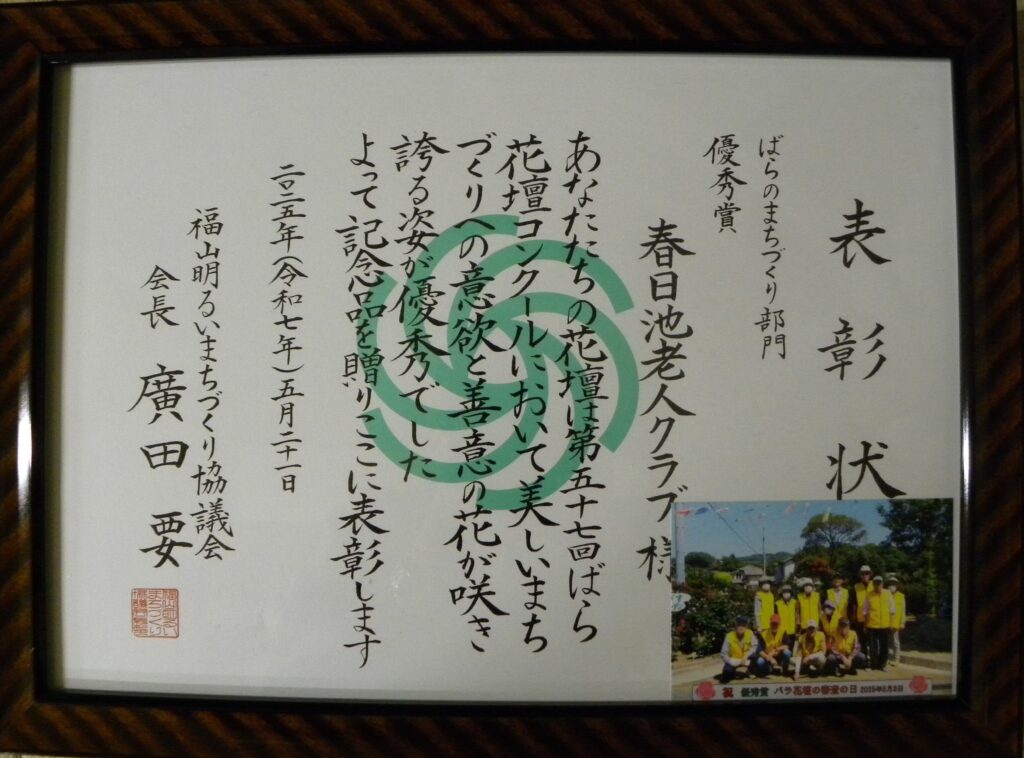 表彰状
ばらのまちづくり部門
優秀賞
春日池老人クラブ様
あなたたちの花壇は第五十七回ばら
花壇コンクールにおいて美しいまち
づくりへの意欲と善意の花が咲き
誇る姿が優秀でした
よって記念品を贈りここに表彰します
二〇二五年(令和七年)五月二十一日
福山明るいまちづくり協議会
会長 廣田要
祝 優秀賞 バラ花壇の審査の日 2025年5月8日